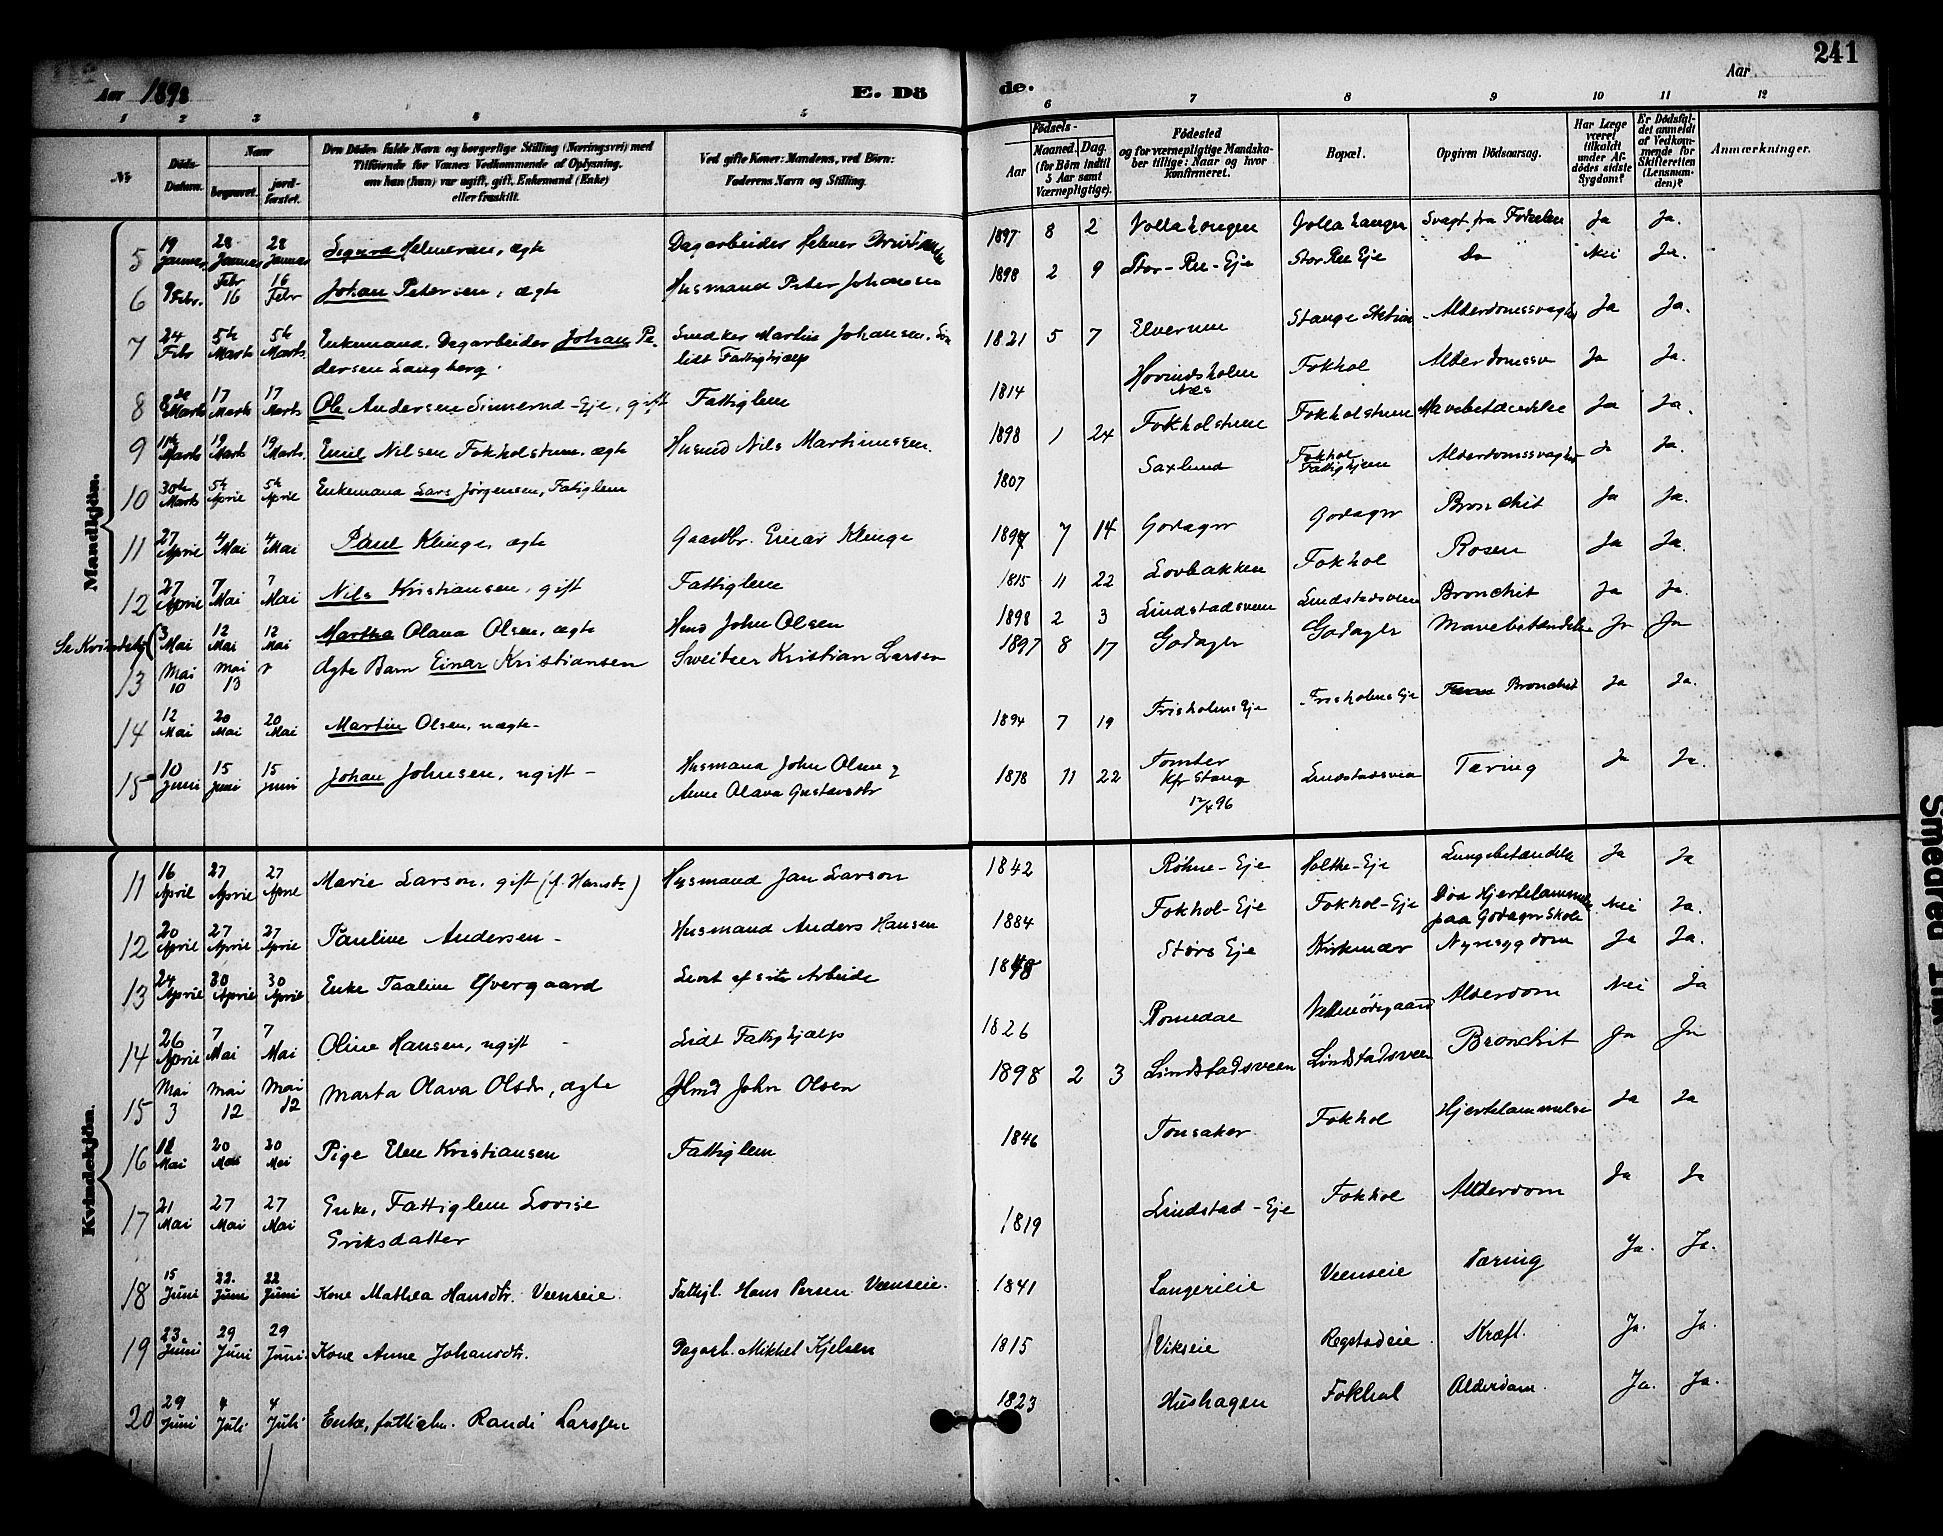 241
Aar 1898 E. Döde. Aar
1 2 3 4 5 6 7 8 9 10 11 12
№
Döds-Datum.
Naar
begravet. jordfæstet.
Den Dödes fulde Navn og borgerlige Stilling (Næringsvei) med
Tilföiende for Vœnes Vedkommende af Oplysning,
om han (hun) var ugift, gift, Enkemand (Enke)
eller fraskilt.
Ved gifte Koner: Mandens, ved Börn:
Faderens Navn og Stilling.
Födsels-
Aar
Maaned. Dag.
(for Börn indtil
5 Aar samt
Værnepligtige).
Födested
og for værnepligtige Mandska-
ber tillige: Naar og hvor
Konfirmeret.
Bopæl.
Opgiven Dödsaarsag.
Har Læge
været
tilkaldt
under Af-
dödes sidste
Sygdom?
Er Dödsfal-
det anmeldt
af Vedkom-
mende for
Skifteretten
(Lensman-
den)?
Anmærkninger.
Mandkjön.
5 19 Januar 28 Januar 28 Januar Sigurd Helmersen, ægte Dagarbeider Helmer 1897 8 2 Svagt fra Fødselen Ja Ja.
6 9 Febr. Febr 16 16 Febr Johan Petersen, ægte Husmand Peter Johansen 1898 2 9 Stor-Ree-Eje Stor Ree Eje Do Nei Ja.
7 24 Febr 5te Marts 5te Marts. Enkemand. Dagarbeider Johan Pe- Snedker Martin Johansen. 1821 5 7 Elverum Stange Station Alderdomssvaghed Ja Ja.
dersen Langberg. lidt Fattighjælp
8 8de Marts 17 Marts 17 Marts Ole Andersen -Eje, gift Fattiglem 1814 Hovindsholm Nes Fokhol Alderdomssv Ja Ja.
9 11te Marts 19 Marts 19 Marts. Emil Nilsen Fokholstuen. ægte Husmd Nils Martinussen. 1898 1 24 Fokholstuen Fokholstuen Mavebetændelse Ja Ja.
10 30te Marts 5te April 5te April Enkemand Lars Jørgensen, Fatiglem 1807 Saxlund Fokhol Fattighjem Alderdomssvaghed Ja Ja.
11 27 April 4 Mai 4 Mai Paul Klinge, ægte Gaardbr. Einar Klinge 1897 7 14 Godager Godager Bronchit Ja Ja.
12 27 April 7 Mai 7 Mai Nils Kristiansen, gift Fattiglem 1815 11 22 Lovbakken Fokhol Rosen Ja Ja.
Se Kvindekj ( 3 Mai 12 Mai 12 Mai Martha Olava Olsen, ægte Hmd John Olsen 1898 2 3 Lindstadsveen Lindstadsveen Bronchit Ja Ja.
13 Mai 10 Mai 13 " Ægte Barn Einar Kristiansen Sweitser Kristian Larsen 1897 8 17 Godager Godager Mavebetændelse Ja Ja
14 12 Mai 20 Mai 20 Mai Martin Olsen, uægte- 1894 7 19 Frisholms Eje Frisholms Eje Bronchit Ja Ja.
15 10 Juni 15 Juni 15 Juni Johan Johnsen, ugift - Husmand John Olsen & 1878 11 22 Tomter Lindstadsveen Tæring Ja Ja.
Anne Olava Gustavsdtr Kfr Stange
12/4 96
Kvindekjön.
11 16 April 27 April 27 April Marie Larson, gift (f. Hansdtr) Husmand Jan Larson 1842 Røhne-Eje Holthe-Eje Lungebetændelse Ja Ja
12 20 April 27 April 27 April Pauline Andersen - Husmand Anders Hansen 1884 Fokhol-Eje Fokhol-Eje Død Hjertelammelse Nei Ja.
paa Godager Skole
13 24 April 30 April 30 April Enke Taaline Øvergaard Levet af sit Arbeide Størs Eje Kirkenær Nyresygdom Ja Ja.
14 26 April 7 Mai 7 Mai Oline Hansen, ugift - Lidt Fattighjælp 1826 Romedal Alderdom Nei Ja
15 Mai 3 Mai 12 Mai 12 Marta Olava Olsdr, ægte Hmd John Olsen 1898 2 3 Lindstadsveen Lindstadsveen Bronchit Ja Ja
16 12 Mai 20 Mai 20 Mai Pige Elen Kristiansen Fattiglem 1846 Tonsaker Fokhol Hjertelammelse Ja Ja
17 21 Mai 27 Mai 27 Mai Enke, Fattiglem Lovise 1819 Lindstad-Eje Fokhol Alderdom Ja Ja
Eriksdatter
18 15 Juni 22. Juni 22 Juni Kone Mathea Hansdtr. Veenseie. Fattigl. Hans Persen Veenseie. 1841 Langerieie Veenseie Tæring Ja. Ja.
19 23. Juni 29 Juni 29 Juni. Kone Anne Johansdtr. Dagarb. Mikkel Kjelsen 1815 Vikseie Regstadeie. Kræft. Ja. Ja.
20 29 Juni 4 Juli 4 Juli Enke, fattiglm. Randi Larssen 1823 Hushagen Fokhol Alderdom. Ja. Ja.
Smeared Ink